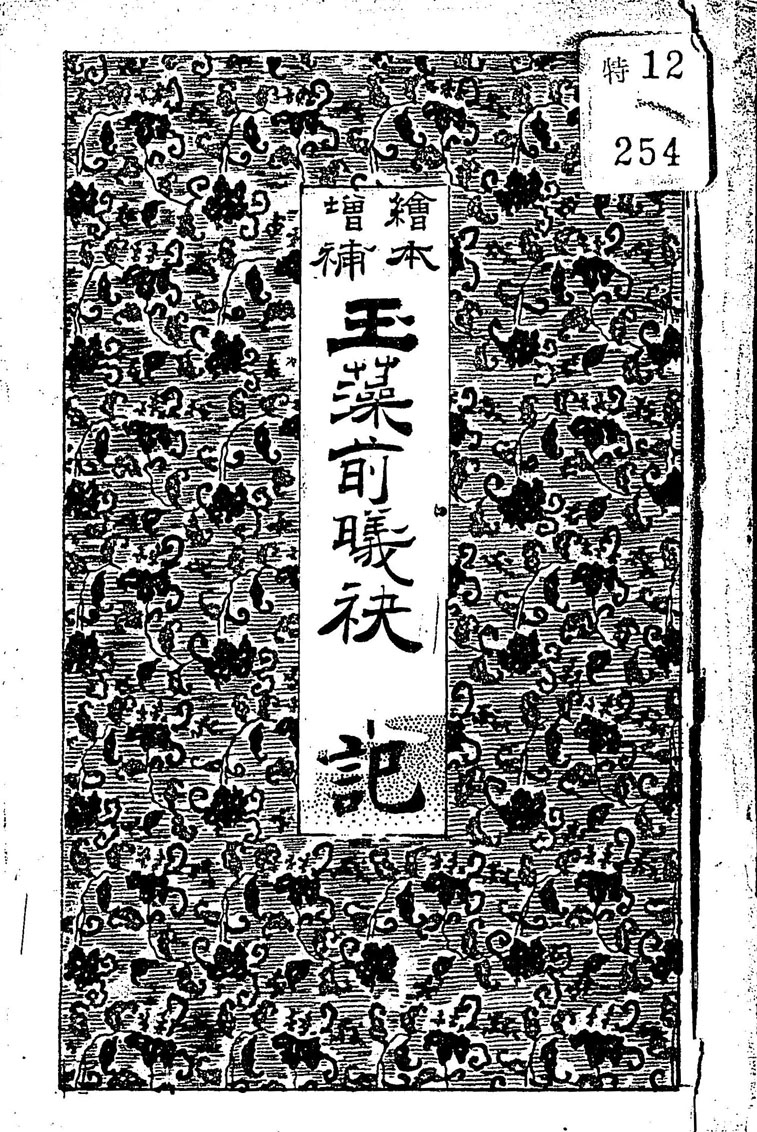 特 12
254
繪本
增補
玉藻前曦袂
記